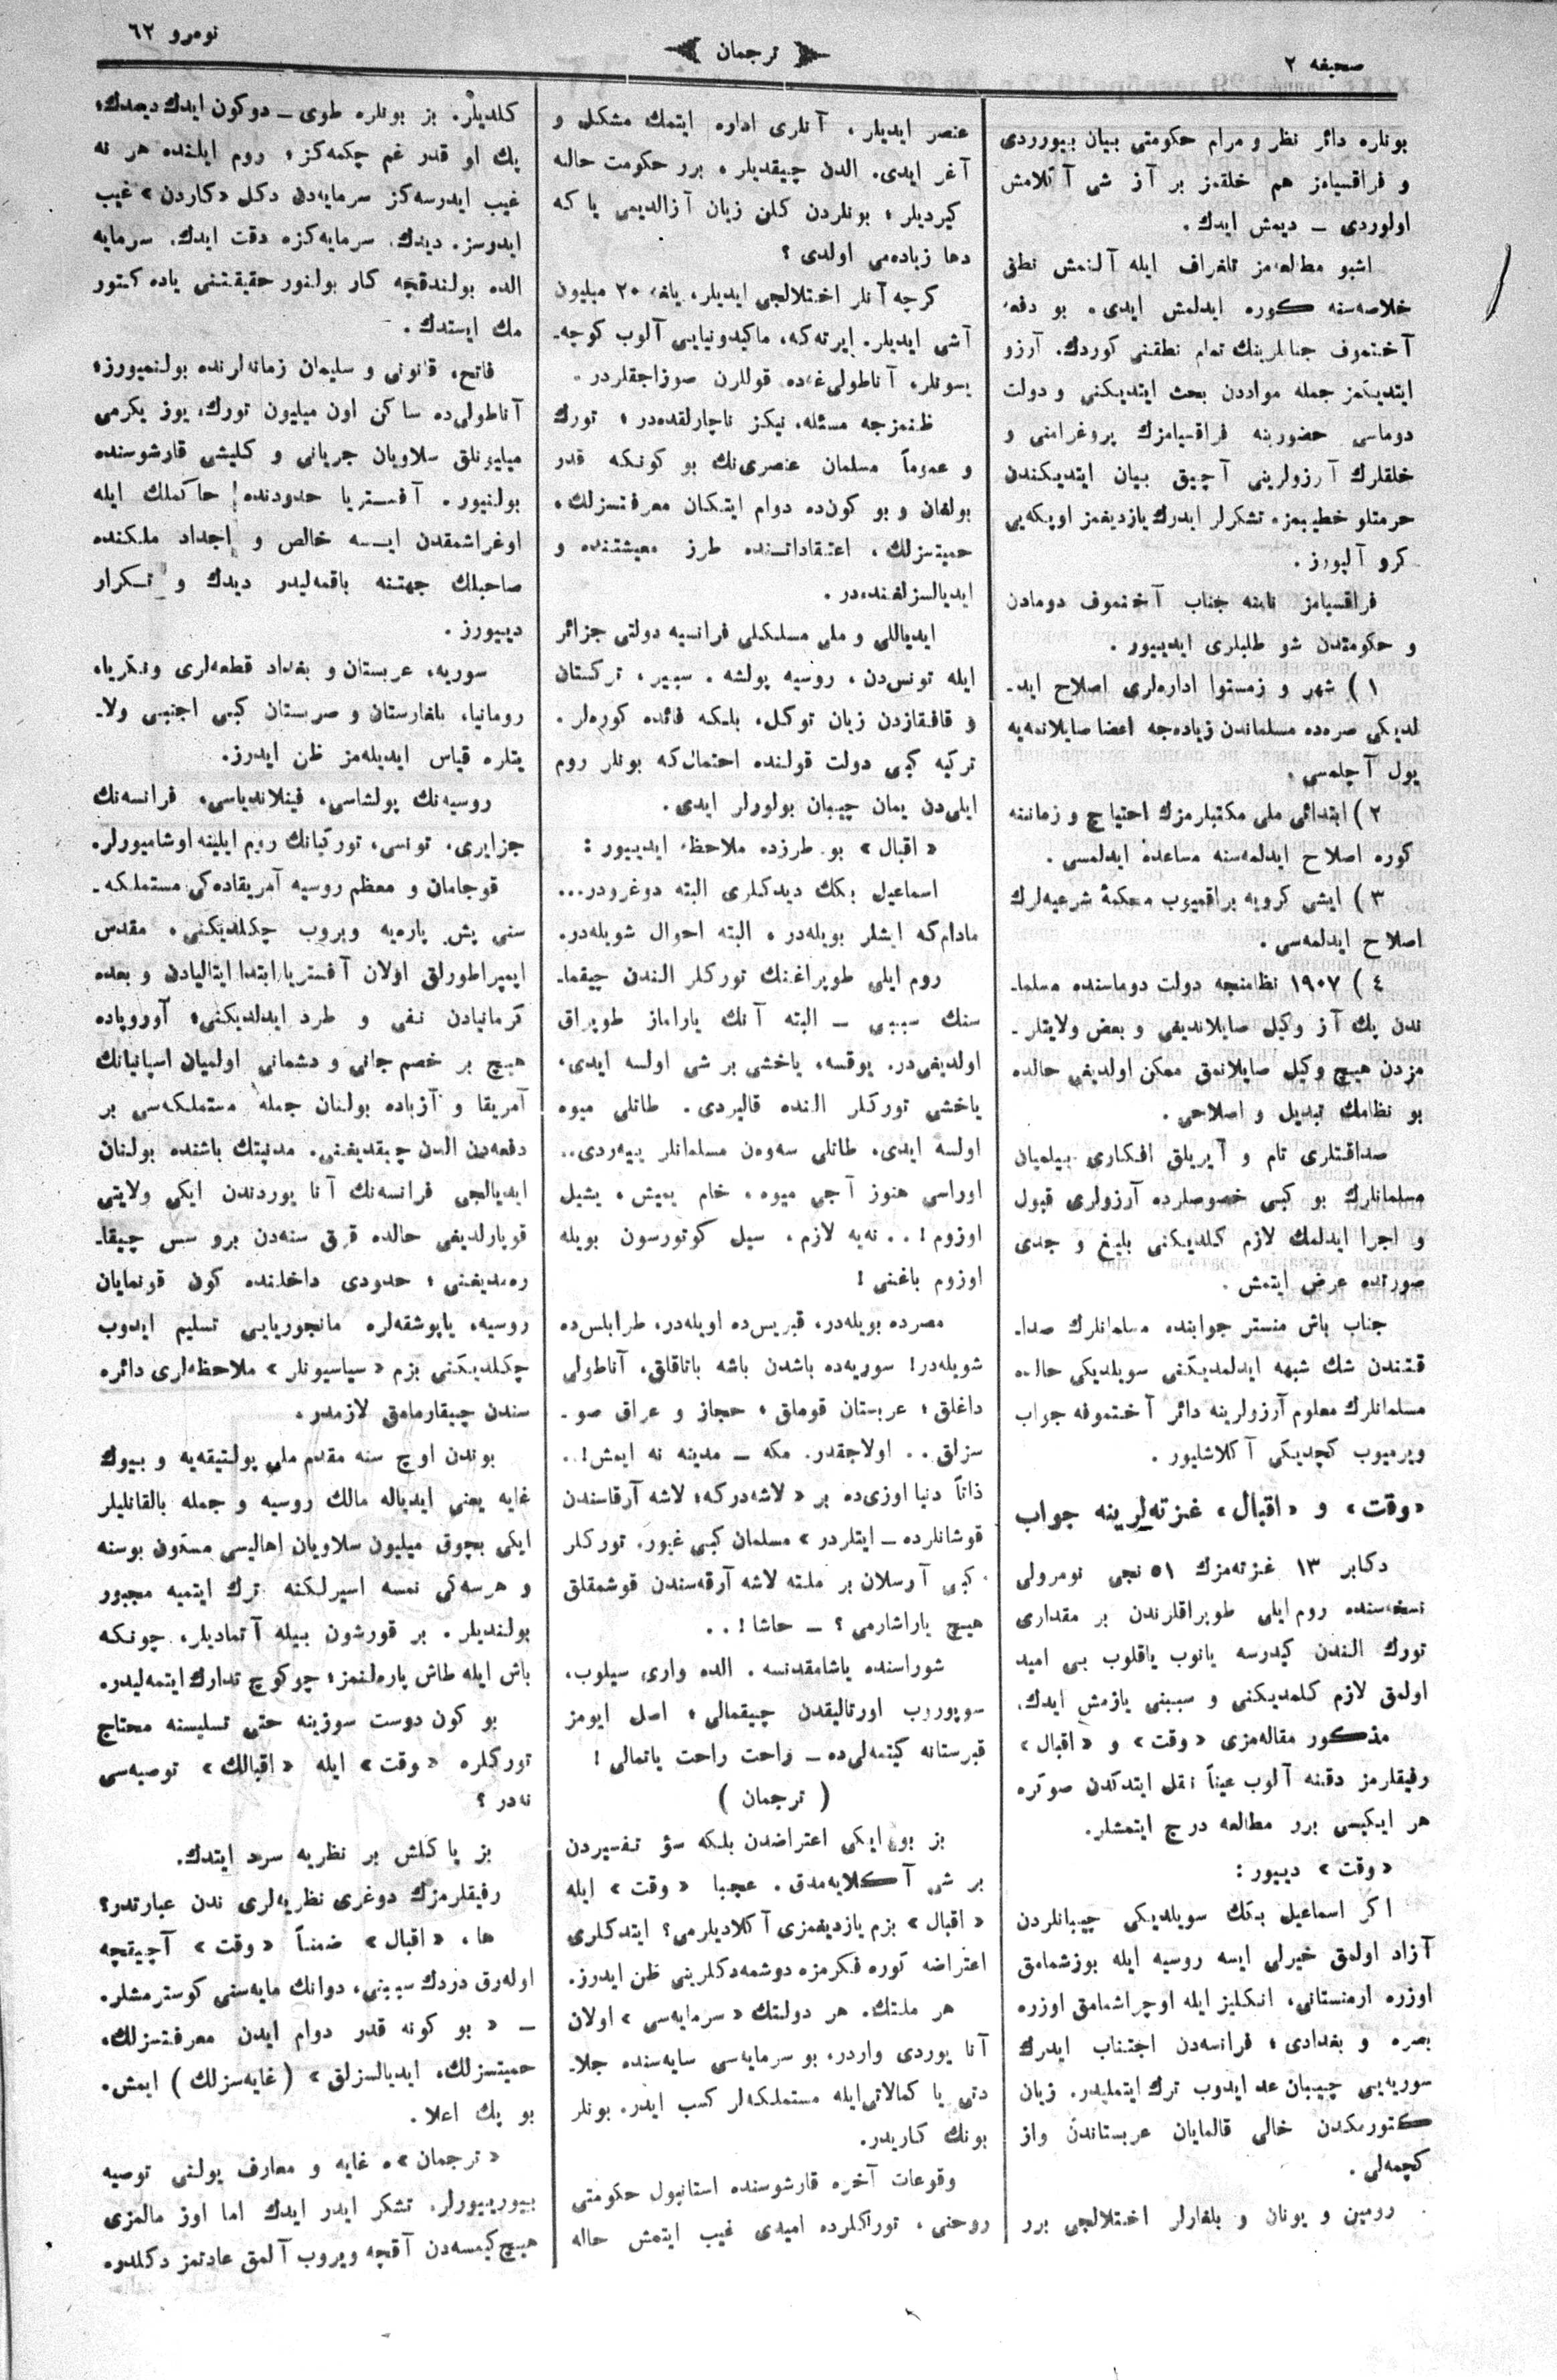 صحیفه ۲
ترجمان
نومرو ٦٢
بونلره دائر نظر و مرام حکومتی بیان بیوردی
و فراقسیامز هم خلقمز بر آز شی آ کلامش
اولوردی ــ دیمش ایدك .
اشبو مطالعه‌مز تلغراف ایله آلنمش نطق
خلاصه‌سنه کوره ایدلمش ایدی . بو دفعه
آختموف جنابلرینك تمام نطقنی کوردك . آرزو
ایتدیکمز جمله مواددن بحث ایتدیکنی و دولت
دوماسی حضورینه فراقسیامزك پروغرامنی و
خلقلرك آرزولرینی آچیق بیان ایتدیکندن
حرمتلو خطیبمزه تشکرلر ایدرك یازدیغمز اوپکه‌یی
کرو آلیورز .
فراقسیامز نامنه جناب آختموف دومادن
و حکومتدن شو طلبلری ایدییور .
۱ ) شهر و زمستوا اداره‌لری اصلاح ایدـ
لدیکی صره‌ده مسلماندن زیاده‌جه اعضا صایلانمه‌یه
یول آچلمسی .
۲ ) ابتدائی ملی مکتبلرمزك احتیاج و زماننه
کوره اصلاح ایدلمه‌سنه مساعده ایدلمسی .
۳ ) ایشی کرویه براقمیوب محکمهٔ شرعیه‌لرك
اصلاح ایدلمه‌سی .
٤ ) ۱۹۰۷ نظامنجه دولت دوماسنده مسلماـ
ندن پك آز وکیل صایلاندیغی و بعض ولایتلرـ
مزدن هیچ وکیل صایلانمق ممکن اولدیغی حالده
بو نظامك تبدیل و اصلاحی .
صداقتلری تام و آیریلق افکاری بیلمیان
مسلمانلرك بو کبی خصوصلرده آرزولری قبول
و اجرا ایدلمك لازم کلدیکنی بلیغ و جدی
صورتده عرض ایتمش .
جناب باش منستر جوابنده مسلمانلرك صداـ
قتندن شك شبهه ایدلمدیکنی سویلدیکی حالده
مسلمانلرك معلوم آرزولرینه دائر آختموفه جواب
ویرمیوب کچدیکی آکلاشلیور .
«وقت» و «اقبال» غزته‌لرینه جواب
دکابر ۱۳ غزته‌مزك ٥۱ نجی نومرولی
نسخه‌سنده روم ایلی طوپراقلرندن بر مقداری
تورك النندن کیدرسه یانوب یاقلوب بی امید
اولمق لازم کلمدیکنی و سببنی یازمش ایدك .
مذکور مقاله‌مزی «وقت» و «اقبال»
رفیقلرمز دقتنه آلوب عیناً نقل ایتدکدن صوکره
هر ایکیسی برر مطالعه درج ایتمشلر .
«وقت» دییور :
اکر اسماعیل بكك سویلدیکی چیبانلردن
آزاد اولمق خیرلی ایسه روسیه ایله بوزشمامق
اوزره ارمنستانی ، انکلیز ایله اوچراشمامق اوزره
بصره و بغدادی ؛ فرانسه‌دن اجتناب ایدرك
سوریه‌یی چیبان عد ایدوب ترك ایتملیدر . زیان
کتورمکدن خالی قالمایان عربستاندن واز
کچمه‌لی .
رومین و یونان و بلغارلر اختلالجی برر
عنصر ایدیلر ، آنلری اداره ایتمك مشکل و
آغر ایدی . الدن چیقدیلر ، برر حکومت حاله
کیردیلر ؛ بونلردن کلن زیان آزالدیمی یا که
دها زیاده‌می اولدی ؟
کرچه آنلر اختلالجی ایدیلر ، یاغه ۲۰ میلیون
آشی ایدیلر . ایرته‌که ، ماکیدونیایی آلوب کوجه‌ـ
یسونلر ، آناطولی‌غه‌ده قوللرن صوزاجقلردر .
ظنمزجه مسئله ، نیکز ناچارلقده‌در ؛ تورك
و عموماً مسلمان عنصری‌نك بو کونکه قدر
بولغان و بو کون‌ده دوام ایتکان معرفتسزلك ،
حمیتسزلك ، اعتقاداتـنده طرز معیشتنده و
ایدیالسزلغنده‌در .
ایدیاللی و ملی مسلکلی فرانسیه دولتی جزائر
ایله تونس‌دن ، روسیه پولشه . سیبیر ، ترکستان
و قافقازدن زیان توکل ، بلکه فائده کوره‌لر .
ترکیه کبی دولت قولنده احتمال‌که بونلر روم
ایلی‌دن یمان چیبان بولورلر ایدی .
« اقبال » بو طرزده ملاحظه ایدییور :
اسماعیل بكك دیدکلری البته دوغرودر...
مادام‌که ایشلر بویله‌در ، البته احوال شویله‌در .
روم ایلی طوپراغنك تورکلر الندن چیقماـ
سنك سببی ــ البته آنك یاراماز طوپراق
اولدیغی‌در . یوقسه ، یاخشی بر شی اولسه ایدی ،
یاخشی تورکلر النده قالیردی . طاتلی میوه
اولسه ایدی ، طاتلی سه‌وه‌ن مسلمانلر ییه‌ردی . .
اوراسی هنوز آجی میوه ، خام یمیش ، یشیل
اوزوم ! . . نه‌یه لازم ، سیل کوتورسون بویله
اوزوم باغنی !
مصرده بویله‌در ، قبریس‌ده اویله‌در ، طرابلس‌ده
شویله‌در ! سوریه‌ده باشدن باشه باتاقلق ، آناطولی
داغلق ؛ عربستان قوملق ؛ حجاز و عراق صوـ
سزلق . . اولاجقدر . مکه ــ مدینه نه ایمش ! . .
ذاتاً دنیا اوزی‌ده بر « لاشه‌درکه ؛ لاشه آرقاسندن
قوشانلرده ــ ایتلردر » مسلمان کبی غیور . تورکلر
کبی آرسلان بر ملته لاشه آرقه‌سندن قوشمقلق
هیچ یاراشارمی ؟ ــ حاشا ! . .
شوراسنده یاشامقدنسه . الده واری سیلوب ،
سوپوروب اورتالیقدن چیقمالی ؛ اصل ایومز
قبرستانه کیتمه‌لی‌ده ــ راحت راحت یاتمالی !
( ترجمان )
بز بو ایکی اعتراضدن بلکه سؤ تفسیردن
بر شی آکلایه‌مدق . عجبا « وقت » ایله
« اقبال » بزم یازدیغمزی آکلادیلرمی ؟ ایتدکلری
اعتراضه کوره فکرمزه دوشمه‌دکلرینی ظن ایدرز .
هر ملتك . هر دولتك « سرمایه‌سی » اولان
آنا یوردی واردر ، بو سرمایه‌سی سایه‌سنده جلاـ
دتی یا کمالاتی‌ایله مستملکه‌لر کسب ایدر . بونلر
بونك کاریدر .
وقوعات آخره قارشوسنده استانبول حکومتی
روحنی ، تورکلرده امیدی غیب ایتمش حاله
کلدیلر . بز بونلره طوی ــ دوکون ایدك دیمدك ؛
پك او قدر غم چکمه‌کز ؛ روم ایلنده هر نه
غیب ایدرسه‌کز سرمایه‌دن دکل «کاردن» غیب
ایدرسز . دیدك . سرمایه‌کزه دقت ایدك . سرمایه
الده بولندقچه کار بولنور حقیقتنی یاده کتورـ
مك ایستدك .
فاتح ، قانونی و سلیمان زمانه‌لرنده بولنمیورز ؛
آناطولی‌ده ساکن اون میلیون تورك ، یوز یکرمی
میلیونلق سلاویان جریانی و کلیشی قارشوسنده
بولنیور . آفستریا حدودنده حاکملك ایله
اوغراشمقدن ایسه خالص و اجداد ملکنده
صاحبلك جهتنه باقمه‌لیدر دیدك و تکرار
دییورز .
سوریه ، عربستان و بغداد قطعه‌لری ونکریا ،
رومانیا ، بلغارستان و صربستان کبی اجنبی ولاـ
یتلره قیاس ایدیله‌مز ظن ایدرز .
روسیه‌نك پولشاسی ، فینلاندیاسی ، فرانسه‌نك
جزایری . تونسی ، تورکیانك روم ایلینه اوشامیورلر .
قوجامان و معظم روسیه آمریقاده‌کی مستملکه‌ـ
سنی بش پاره‌یه ویروب چکلدیکنی ، مقدس
ایمپراطورلق اولان آفستریا ابتدا ایتالیادن و بعده
کرمانیادن نفی و طرد ایدلدیکنی ؛ آوروپاده
هیچ بر خصم جانی و دشمانی اولمیان اسپانیانك
آمریقا و آزیاده بولنان جمله مستملکه‌سی بر
دفعه‌دن الدن چیقدیغنی . مدنیتك باشنده بولنان
ایدیالجی فرانسه‌نك آنا یوردندن ایکی ولایتی
قوپارلدیغی حالده قرق سنه‌دن برو سس چیقاـ
ره‌مدیغنی ؛ حدودی داخلنده کون قونمایان
روسیه ، یاپوشقه‌لره مانجوریایی تسلیم ایدوب
چکلدیکنی بزم « سیاسیونلر » ملاحظه‌لری دائره
سندن چیقارمامق لازمدر .
بوندن اوچ سنه مقدم ملی پولتیقه‌یه و بیوك
غایه یعنی ایدیاله مالك روسیه و جمله بالقانلیلر
ایکی بچوق میلیون سلاویان اهالیسی مسکون بوسنه
و هرسه‌کی نمسه اسیرلکنه ترك ایتمیه مجبور
بولندیلر . بر قورشون بیله آتمادیلر ، چونکه
باش ایله طاش یاره‌لنمز ؛ چوکوچ تدارك ایتمه‌لیدر .
بو کون دوست سوزینه حتی تسلیسنه محتاج
تورکلره « وقت » ایله « اقبالك » توصیه‌سی
نه‌در ؟
بز یاکلش بر نظریه سرد ایتدك .
رفیقلرمزك دوغری نظریه‌لری ندن عبارتدر ؟
ها ، « اقبال » ضمناً « وقت » آچیقچه
اوله‌رق دردك سببنی ، دوانك مایه‌سنی کوسترمشلر .
ــ « بو کونه قدر دوام ایدن معرفتسزلك ،
حمیتسزلك ، ایدیالسزلق » ( غایه‌سزلك ) ایمش .
بو پك اعلا .
« ترجمان » ه غایه و معارف یولنی توصیه
بیورییورلر . تشکر ایدر ایدك اما اوز مالمزی
هیچ کیمسه‌دن آقچه ویروب آلمق عادتمز دکلدر .